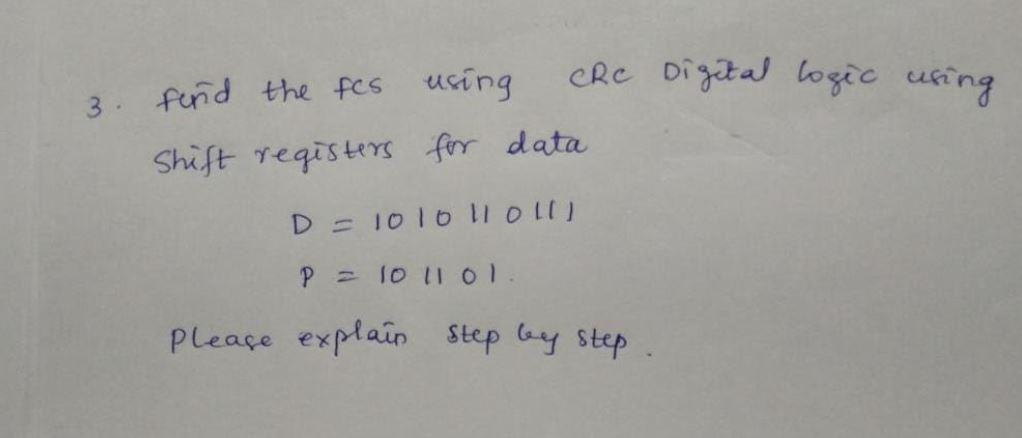 3. find the fcs using CRC Digital logic using
Shift registers for data
D = 1010110111
P = 101101.
Please explain step by step.